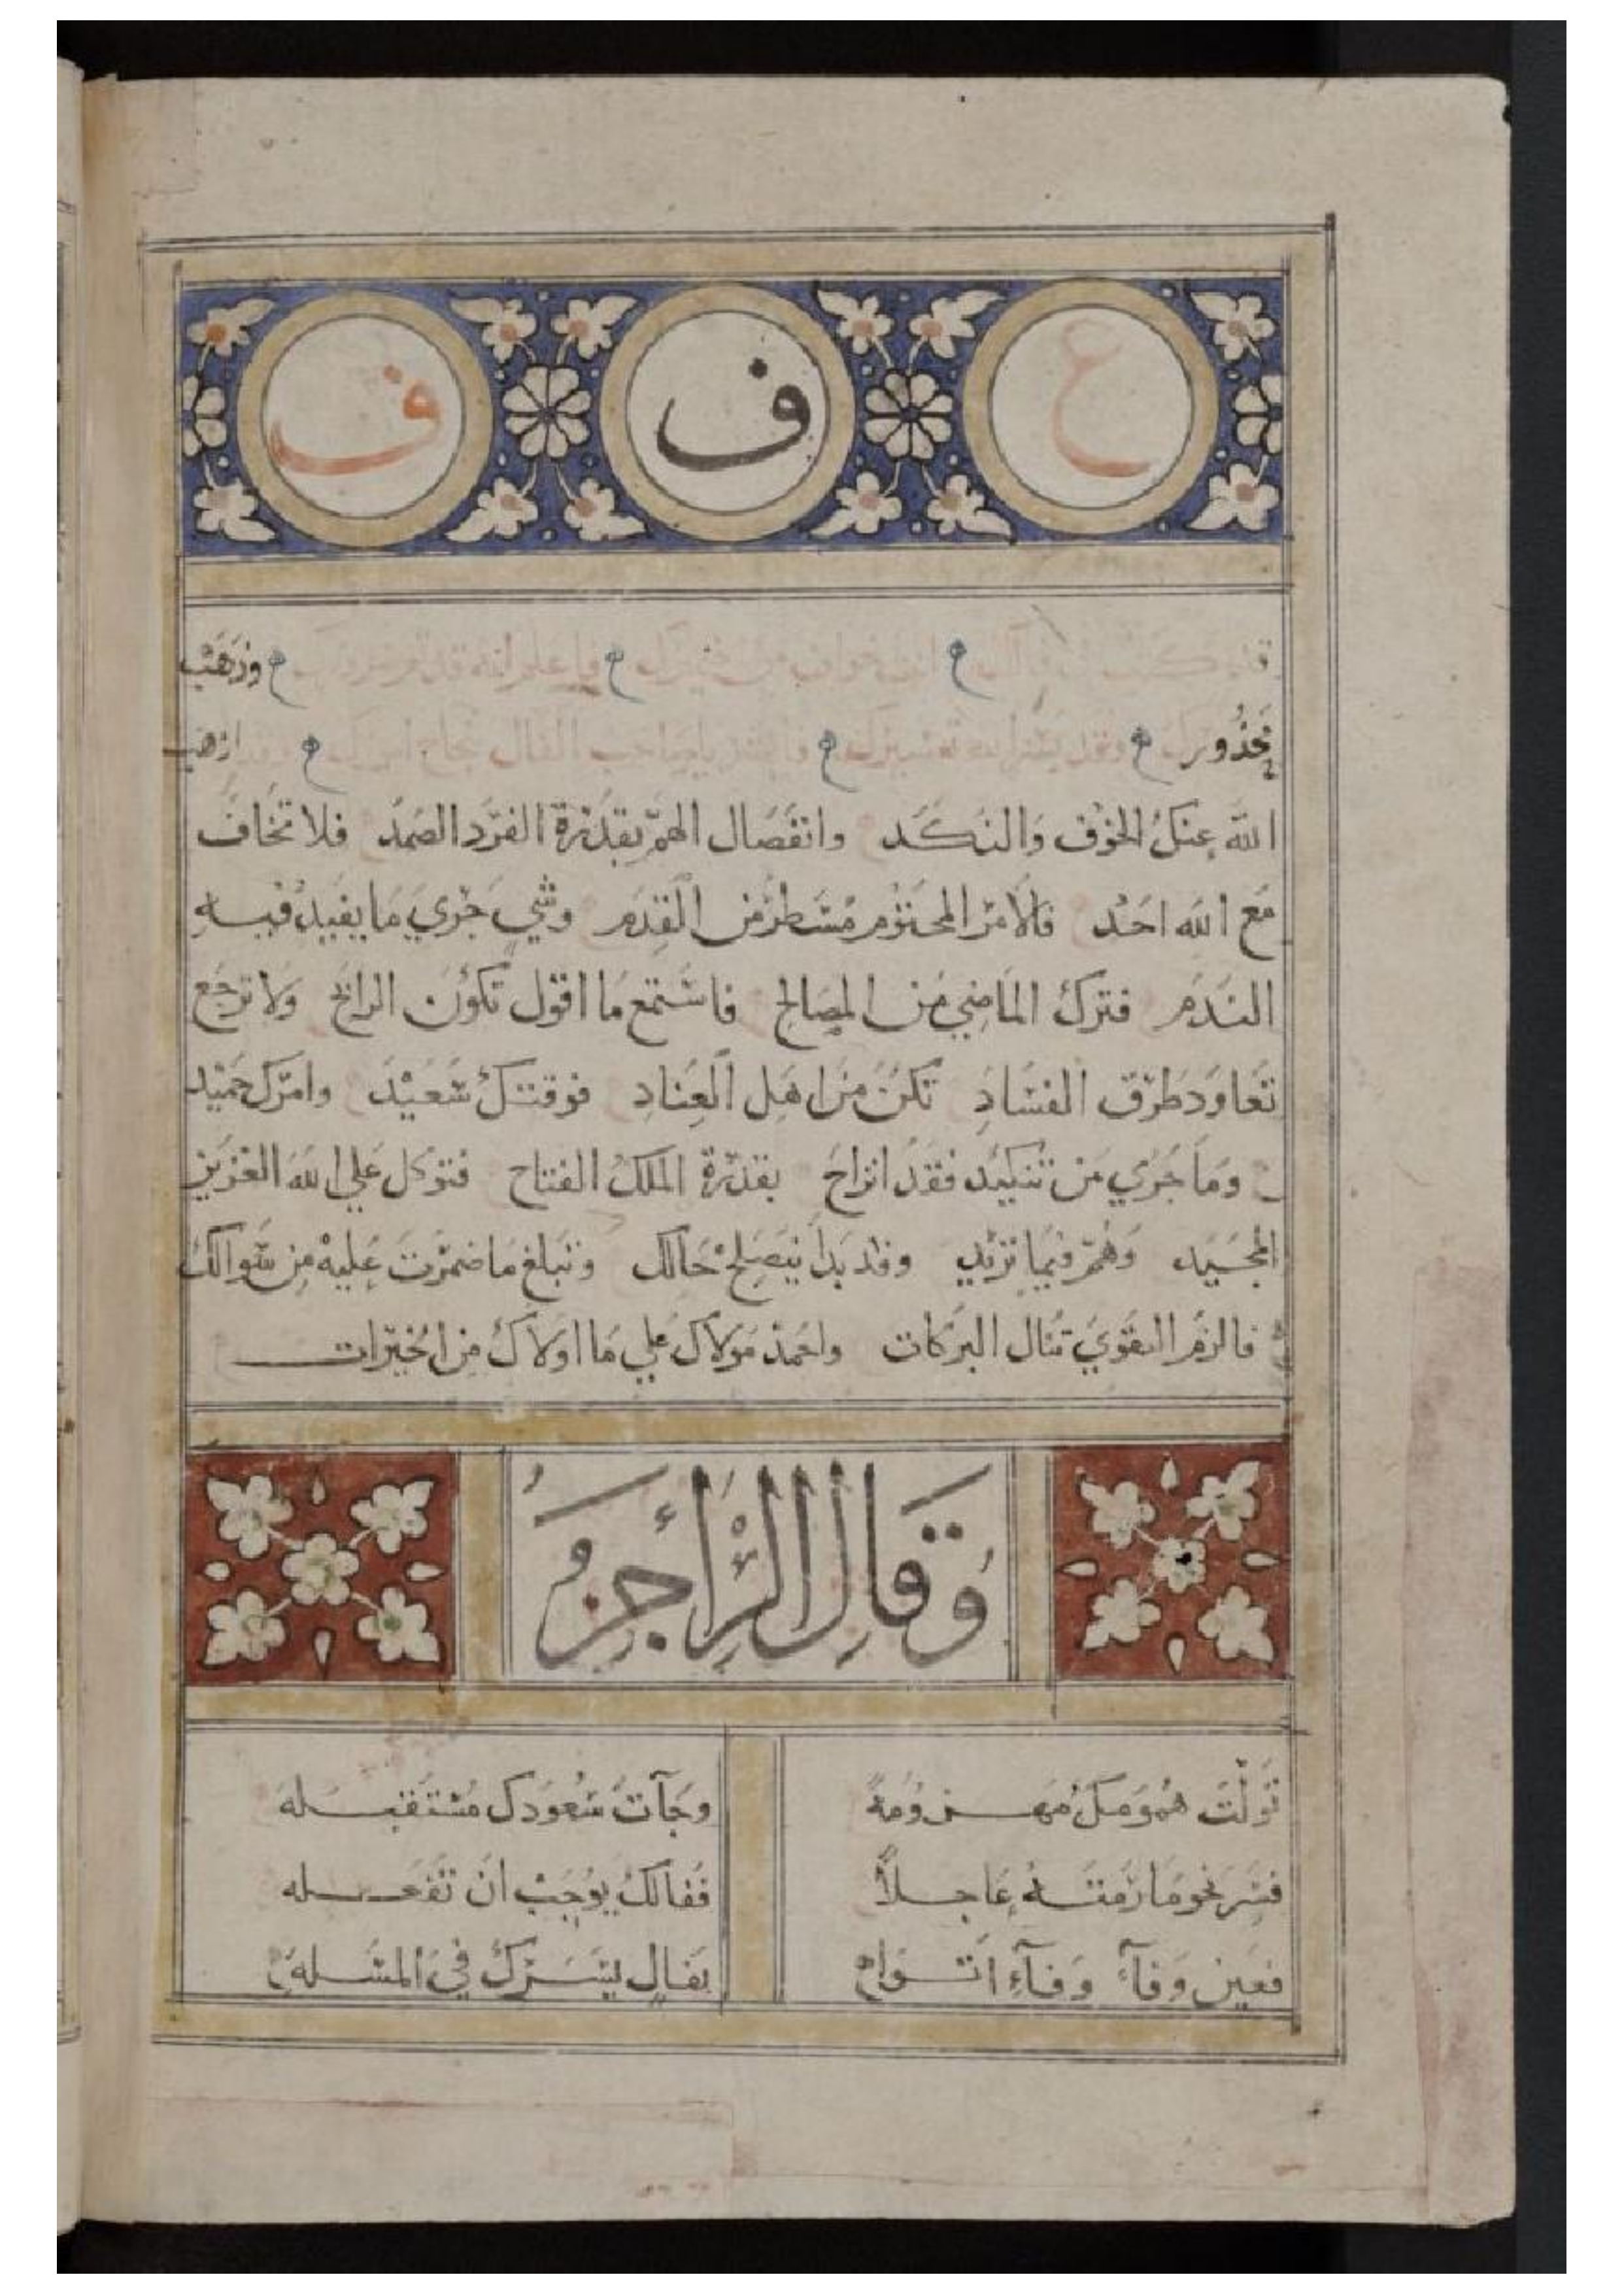 ع ف ف
وذهب
محذور وقد يشر الله يا صاحب الفال نجاح امرك وقد اذهب
الله عنك الخوف والنكد وانفصال الهم بقدرة الفرد الصمد فلا تخاف
مع الله احد فالامر المحتوم مسطر من القدم وشي جري ما يفيد فيه
الندم فترك الماضي من المصالح فاستمع ما اقول تكون الرابح ولا ترجع
تعاود طرق الفساد تكن من اهل العناد فوقتك سعيد وامرك حميد
وما جري من تنكيد فقد انزاح بقدرة الملك الفتاح فتوكل علي الله العزيز
المجيد وهم فيما تريد وقد بدا يصلح حالك وتبلغ ما ضمرت عليه من سوالك
فالزم التقوي تنال البركات واحمد مولاك علي ما اولاك من الخيرات
وقال الراجز
تولت همومك مهزومة وجآت سعودك مستقبله
فسر نحو ما رمته عاجلاً ففالك يوجب ان تفعله
فعين وفآء وفآء اتوا بفال يسرك في المسله